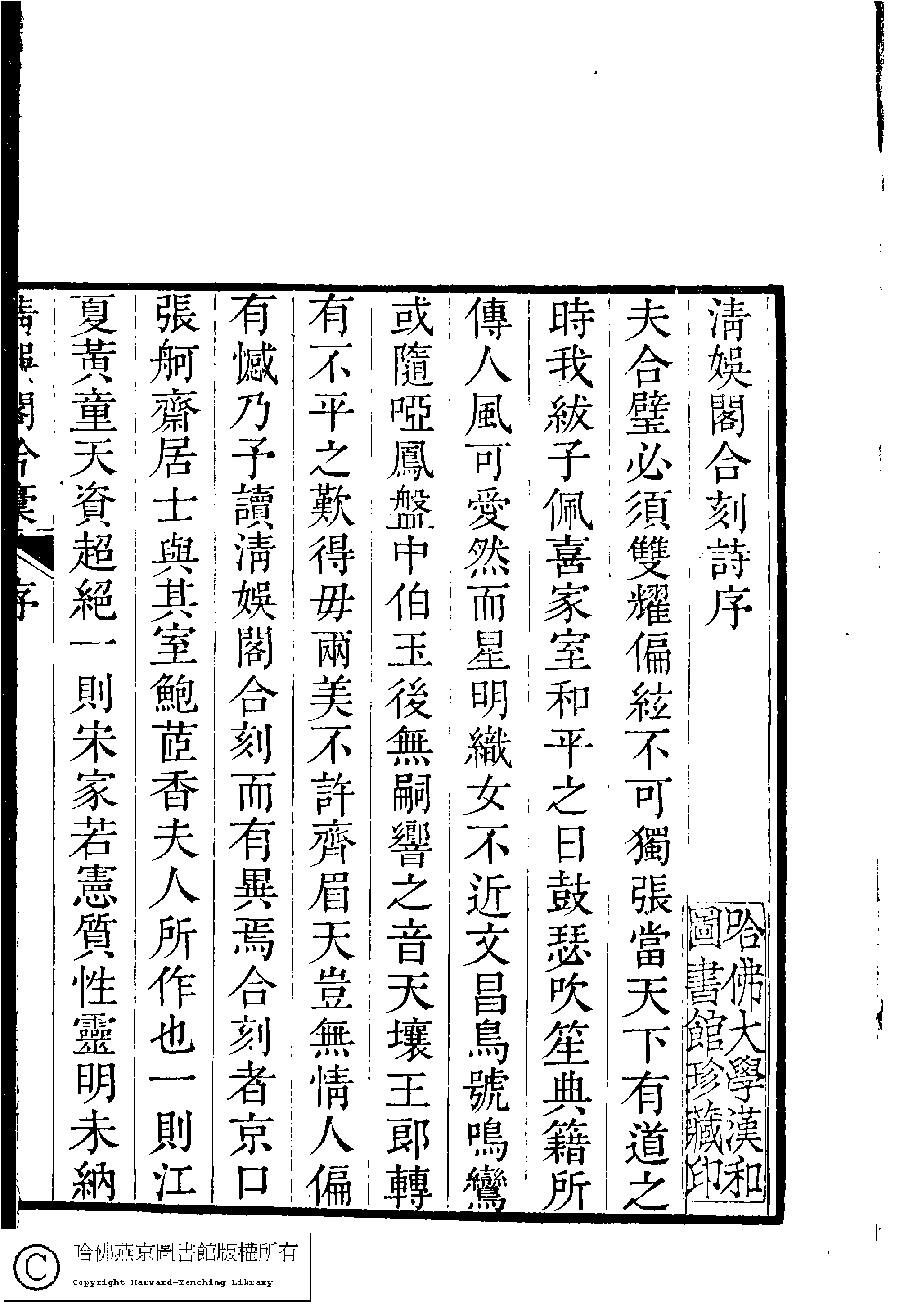 清娛閣合刻詩序
夫合璧必須雙耀偏絃不可獨張當天下有道之
時我紱子佩喜家室和平之日鼓瑟吹笙典籍所
傳人風可愛然而星明織女不近文昌鳥號鳴鸞
或隨啞鳳盤中伯玉後無嗣響之音天壤王郎轉
有不平之歎得毋兩美不許齊眉天豈無情人偏
有憾乃予讀清娛閣合刻而有異焉合刻者京口
張舸齋居士與其室鮑茝香夫人所作也一則江
夏黃童天資超絕一則宋家若憲質性靈明未納
清娛閣合稾
序
哈佛大學漢和
圖書館珍藏印
© 哈佛燕京圖書館版權所有
Copyright Harvard-Yenching Library